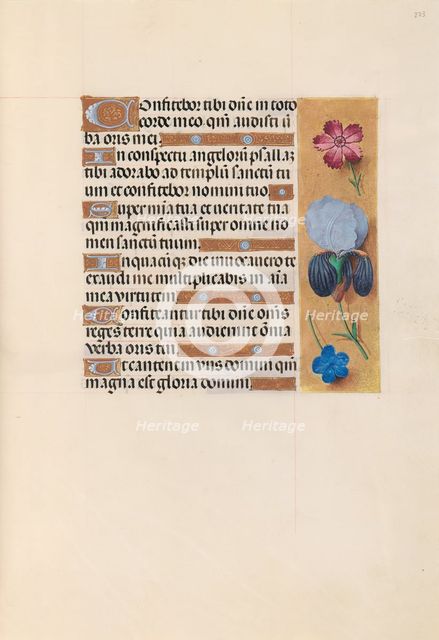 223
Confitebor tibi dñe in toto
corde meo qm̃ audisti ũ
ba oris mei.
In conspectu angelorũ psallaʒ
tibi adorabo ad templũ sanctũ tu
um et confitebor nomini tuo.
Super mia tua et veritate tua
qm̃ magnificasti super omne no
men sanctũ tuum.
In quacũqʒ die invocavero te
exaudi me multiplicabis in aĩa
mea virtutem
Confiteantur tibi dñe om̃s
reges terre quia audierunt õma
verba oris tui.
Et cantent in viis domini qm̃
magna est gloria domini.
Heritage
Heritage
Heritage
Heritage
Heritage
Heritage